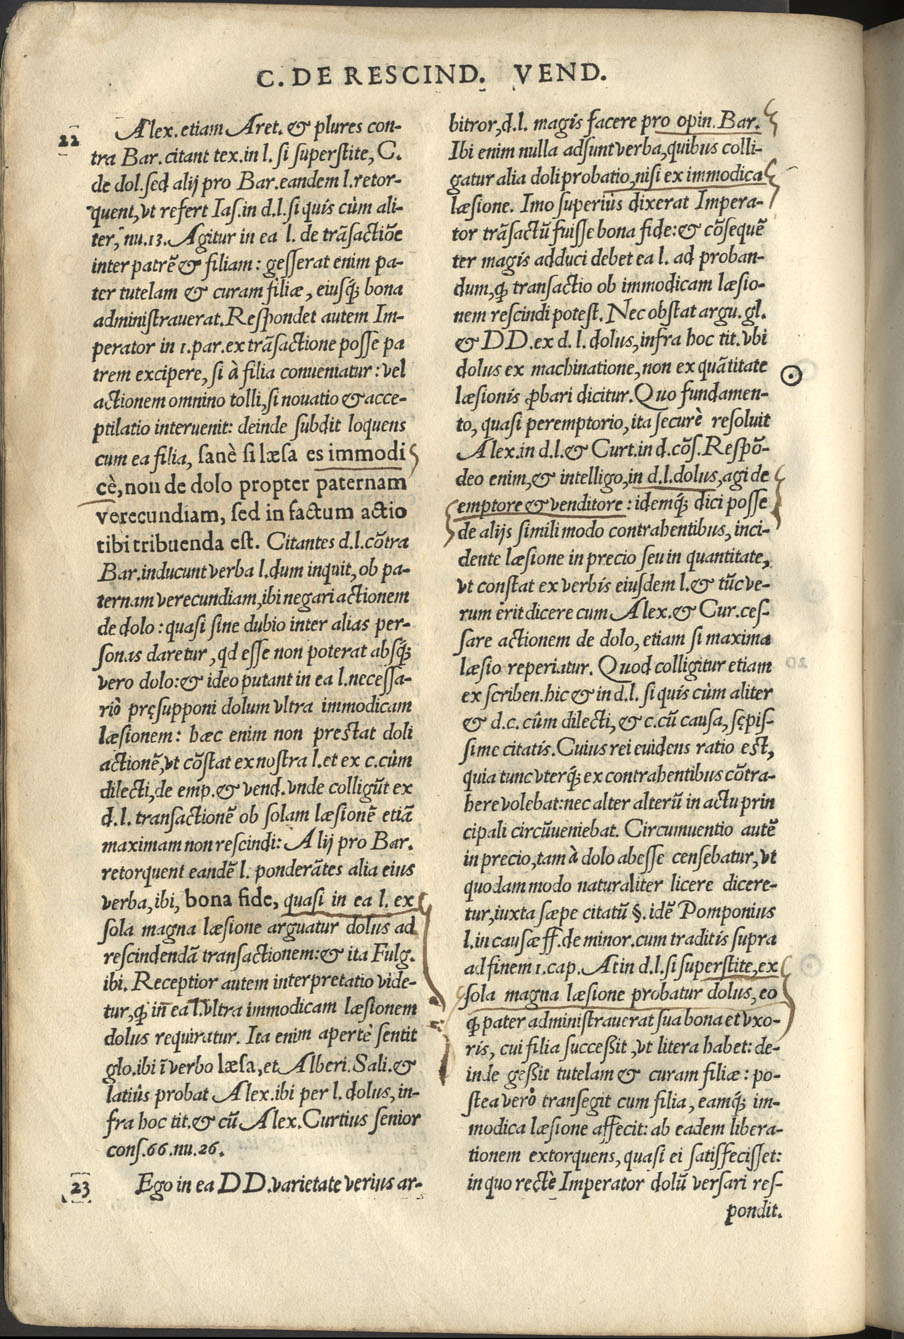 C. DE RESCIND. VEND.
22 Alex. etiam Aret. & plures con-
tra Bar. citant tex. in l. si superstite, C.
de dol. sed alij pro Bar. eandem l. retor-
quent, vt refert Ias. in d. l. si quis cùm ali-
ter, nu. 13. Agitur in ea l. de trãsactiõe
inter patrẽ & filiam: gesserat enim pa-
ter tutelam & curam filiæ, eiusq́; bona
administrauerat. Respondet autem Im-
perator in 1. par. ex trãsactione posse pa
trem excipere, si à filia conueniatur: vel
actionem omnino tolli, si nouatio & acce-
ptilatio interuenit: deinde subdit loquens
cum ea filia, sanè si læsa es immodi
cè, non de dolo propter paternam
verecundiam, sed in factum actio
tibi tribuenda est. Citantes d. l. cõtra
Bar. inducunt verba l. dum inquit, ob pa-
ternam verecundiam, ibi negari actionem
de dolo: quasi sine dubio inter alias per-
sonas daretur, qd esse non poterat absq́;
vero dolo: & ideo putant in ea l. necessa-
riò pręsupponi dolum vltra immodicam
læsionem: hæc enim non prestat doli
actionẽ, vt cõstat ex nostra l. et ex c. cùm
dilecti, de emp. & vend. vnde colligũt ex
d. l. transactionẽ ob solam læsionẽ etiã
maximam non rescindi: Alij pro Bar.
retorquent eandẽ l. ponderãtes alia eius
verba, ibi, bona fide, quasi in ea l. ex
sola magna læsione arguatur dolus ad
rescindendã transactionem: & ita Fulg.
ibi. Receptior autem interpretatio vide-
tur, q̃ in ea l. vltra immodicam læsionem
dolus requiratur. Ita enim apertè sentit
glo. ibi ĩ verbo læsa, et Alberi. Sali. &
latiùs probat Alex. ibi per l. dolus, in-
fra hoc tit. & cũ Alex. Curtius senior
cons. 66. nu. 26.
23 Ego in ea DD. varietate verius ar-
bitror, d. l. magis facere pro opin. Bar.
Ibi enim nulla adsunt verba, quibus colli-
gatur alia doli probatio, nisi ex immodica
læsione. Imo superiùs dixerat Impera-
tor trãsactũ fuisse bona fide: & cõsequẽ
ter magis adduci debet ea l. ad proban-
dum, q̃ transactio ob immodicam læsio-
nem rescindi potest. Nec obstat argu. gl.
& DD. ex d. l. dolus, infra hoc tit. vbi
dolus ex machinatione, non ex quãtitate
læsionis ꝓbari dicitur. Quo fundamen-
to, quasi peremptorio, ita securè resoluit
Alex. in d. l. & Curt. in d. cõs. Respõ-
deo enim, & intelligo, in d. l. dolus, agi de
emptore & venditore: idemq́; dici posse
de alijs simili modo contrahentibus, inci-
dente læsione in precio seu in quantitate,
vt constat ex verbis eiusdem l. & tũc ve-
rum erit dicere cum Alex. & Cur. ces-
sare actionem de dolo, etiam si maxima
læsio reperiatur. Quod colligitur etiam
ex scriben. hic & in d. l. si quis cùm aliter
& d. c. cûm dilecti, & c. cũ causa, sępis-
sime citatis. Cuius rei euidens ratio est,
quia tunc vterq́; ex contrahentibus cõtra-
here volebat: nec alter alterũ in actu prin
cipali circũueniebat. Circumuentio autẽ
in precio, tam à dolo abesse censebatur, vt
quodammodo naturaliter licere dicere-
tur, iuxta sæpe citatũ §. idẽ Pomponius
l. in causæ ff. de minor. cum traditis supra
ad finem 1. cap. At in d. l. si superstite, ex
sola magna læsione probatur dolus, eo
q̃ pater administrauerat sua bona et vxo-
ris, cui filia successit, vt litera habet: de-
inde gessit tutelam & curam filiæ: po-
stea verò transegit cum filia, eamq́; im-
modica læsione affecit: ab eadem libera-
tionem extorquens, quasi ei satisfecisset:
in quo rectè Imperator dolũ versari res-
pondit.